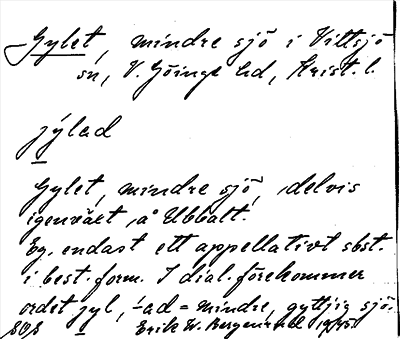 Gylet, mindre sjö i Vittsjö
sn, V. Göinge hd, Krist. l.
jýlad
Gylet, mindre sjö, delvis
igenväxt, å Ubbalt.
Eg. endast ett appellativt sbst.
i best. form. I dial. förekommer
ordet jyl, -ad = mindre, gyttjig sjö.
Erik W. Bergenrud 1945.